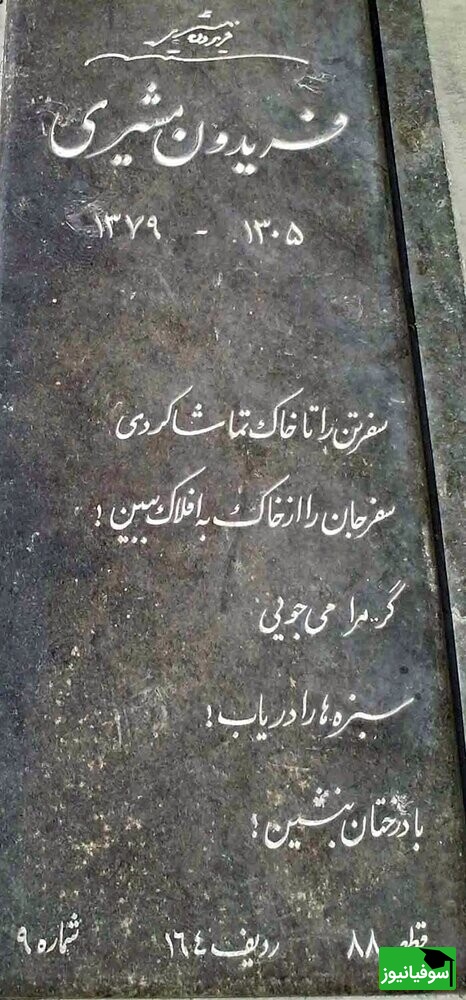 فریدون مشیری
فریدون مشیری
۱۳۰۵ - ۱۳۷۹
سفر تن را تا خاک تماشا کردی
سفر جان را از خاک به افلاک ببین !
گر مرا می جویی
سبزه ها را دریاب !
با درختان بنشین !
قطعه ۸۸ ردیف ۱۶٤ شماره ۹
سوفیانیوز